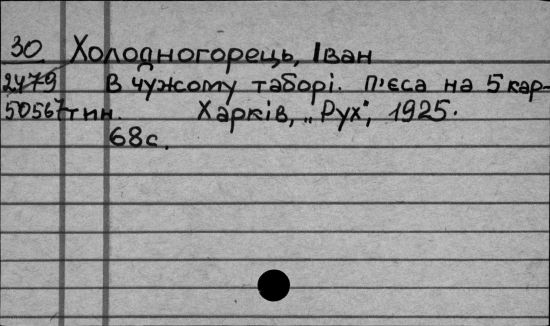 30 Холодногорець, Іван
2479 В чужому таборі. П'єса на 5 кар-
50567 тин. Харків, „Рух", 1925.
68с.